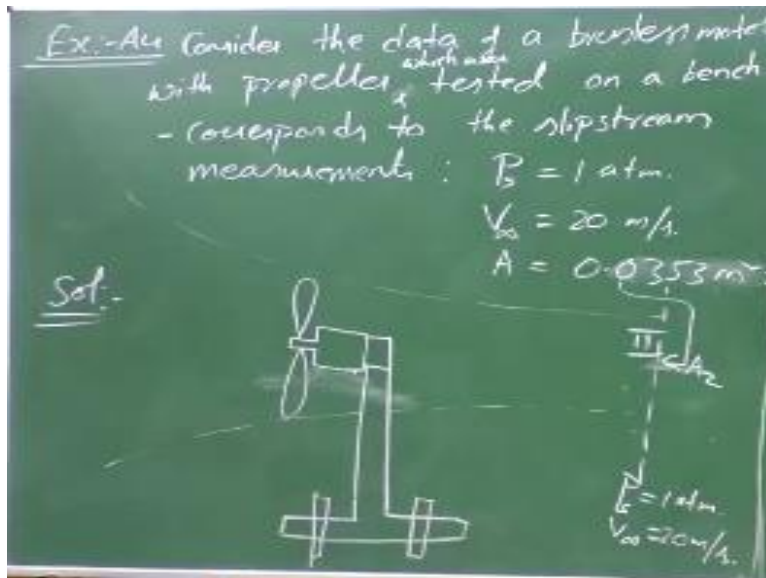 Ex:- Consider the data of a brushless motor
with propeller, which was tested on a bench
- corresponds to the slipstream
measurements : P = 1 atm.
V∞ = 20 m/s.
A = 0.0353 m²
Sol:-
II
A2
= 1 atm
V∞ = 20 m/s.